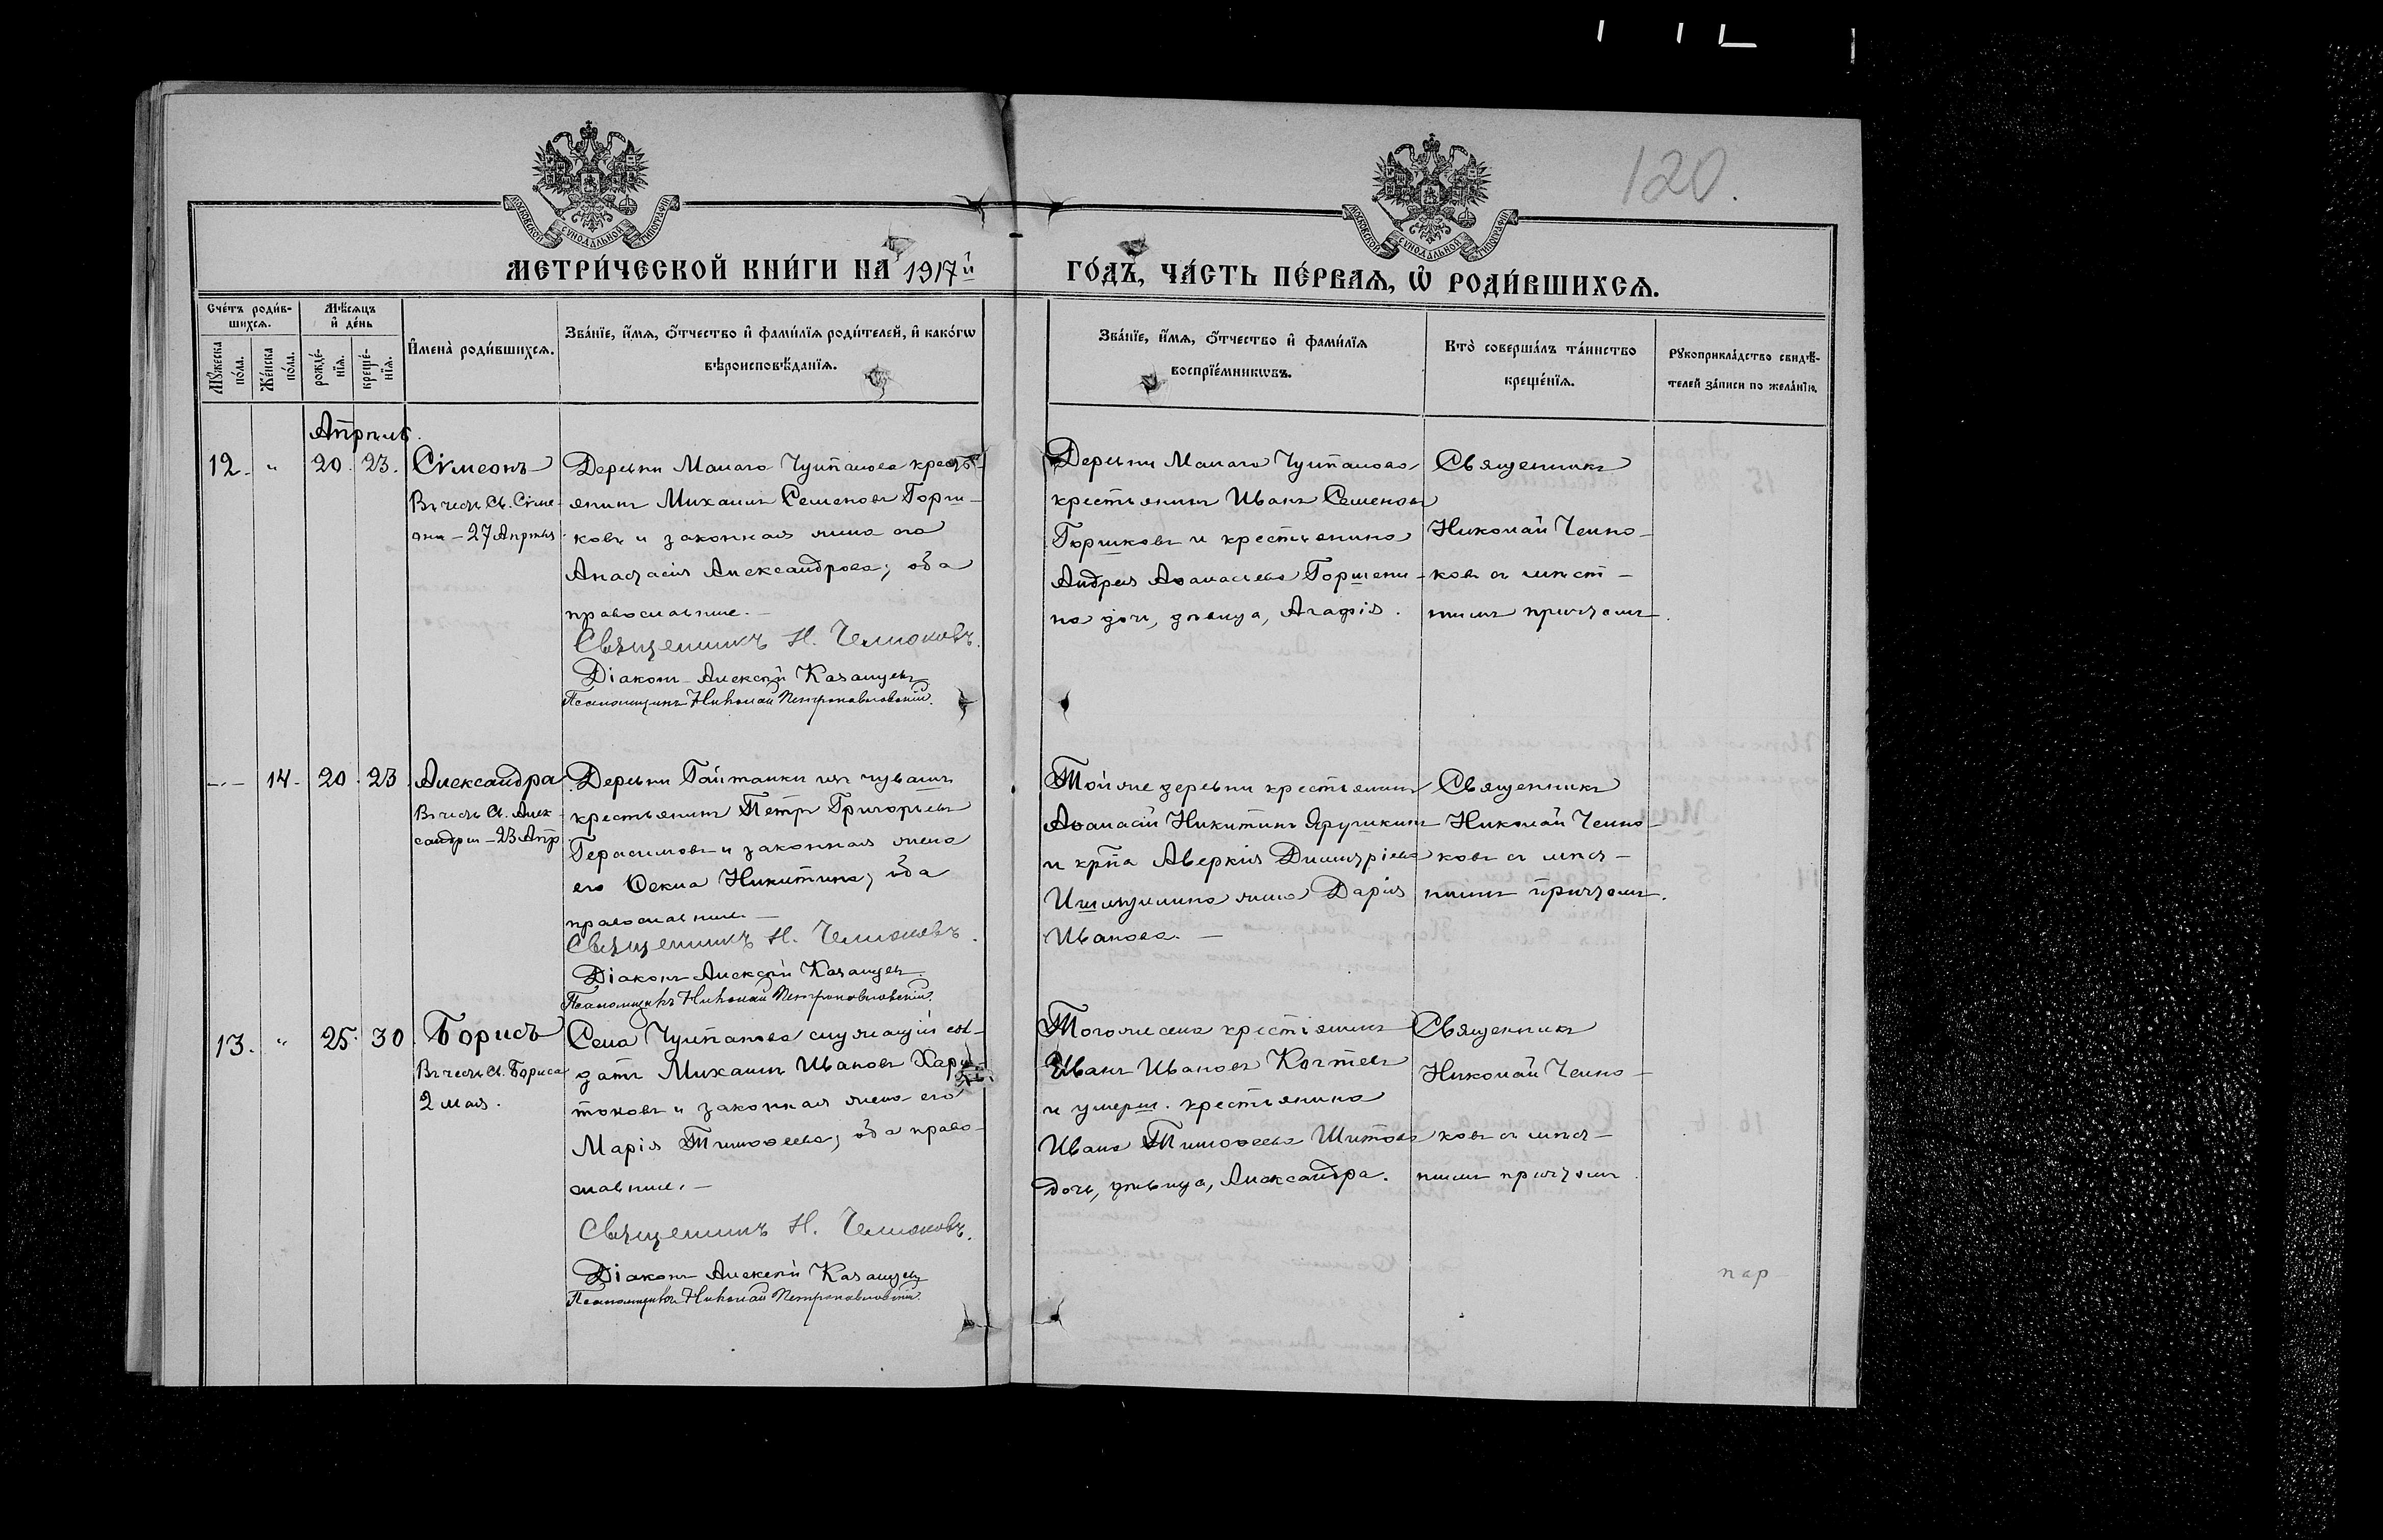 120.
МОСКОВСКОЙ СѴНОДАЛЬНОЙ ТИПОГРАФІИ
МОСКОВСКОЙ СѴНОДАЛЬНОЙ ТИПОГРАФІИ
МЕТРИ́ЧЕСКОЙ КНИ́ГИ НА 1917й
ГО́ДЪ, ЧА́СТЬ ПЕ́РВАѦ, Ѿ РОДИ́ВШИХСѦ.
Сче́тъ роди́в-
шихсѧ.
Мꙋ́жеска
по́ла.
Же́нска
по́ла.
Мѣ́сѧцъ
и҆ де́нь
рожде́-
нїѧ.
креще́-
нїѧ.
И҆мена̀ роди́вшихсѧ.
Зва́нїе, и҆́мѧ, ѻ҆́тчество и҆ фами́лїѧ роди́телей, и҆ како́гѡ
вѣроисповѣ́данїѧ.
Зва́нїе, и҆́мѧ, ѻ҆́тчество и҆ фами́лїѧ
воспрїе́мникѡвъ.
Кто̀ соверша́лъ та́инство
креще́нїѧ.
Рꙋкоприкла́дство свидѣ́-
телей за́писи по жела́нїю.
Апрѣль.
12. " 20. 23. Сѵмеонъ
Въ честь Св. Сѵме-
она – 27 Апрѣля
Деревни Малаго Чуйпалова кресть-
янинъ Михаилъ Семеновъ Горш-
ковъ и законная жена его
Анастасія Александрова; оба
православные. –
Священникъ Н. Челноковъ.
Діаконъ Алексѣй Казанцевъ
Псаломщикъ Николай Петропавловскій.
Деревни Малаго Чуйпалова
крестьянинъ Иванъ Семеновъ
Горшковъ и крестьянина
Андрея Аѳанасьева Горшени-
на дочь, дѣвица, Агафія.
Священникъ
Николай Челно-
ковъ съ мѣст-
нымъ причтомъ.
-.- 14. 20. 23. Александра
Въ честь Св. Алек-
сандры – 23 Апр.
Деревни Гайтанки изъ чувашъ
крестьянинъ Петръ Григорьевъ
Герасимовъ и законная жена
его Ѳекла Никитина; оба
православные –
Священникъ Н. Челноковъ.
Діаконъ Алексѣй Казанцевъ
Псаломщикъ Николай Петропавловскій.
Той же деревни крестьянинъ
Аѳанасій Никитинъ Ярушкинъ
и кр-на Аверкія Димитріева
жена Дарія
Иванова. –
Священникъ
Николай Челно-
ковъ съ мѣст-
нымъ причтомъ.
13. " 25. 30. Борисъ
Въ честь Св. Бориса
2 мая.
Села Чуйпанова служащій сол-
датъ Михаилъ Ивановъ Хари-
тоновъ и законная жена его
Марія Тимоѳеева; оба право-
славные. –
Священникъ Н. Челноковъ.
Діаконъ Алексѣй Казанцевъ
Псаломщикъ Николай Петропавловскій.
Того же села крестьянинъ
Иванъ Ивановъ
и умерш. крестьянина
Ивана Тимоѳеева Шитова
дочь, дѣвица, Александра.
Священникъ
Николай Челно-
ковъ съ мѣст-
нымъ причтомъ
пар